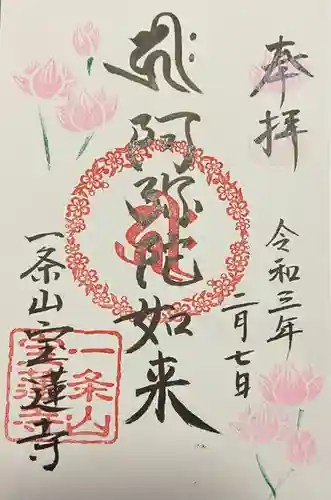 奉拝
令和三年
二月七日
𑖮𑖿𑖨𑖱𑖾
阿弥陀如来
一条山宝蓮寺
一条山
宝蓮寺